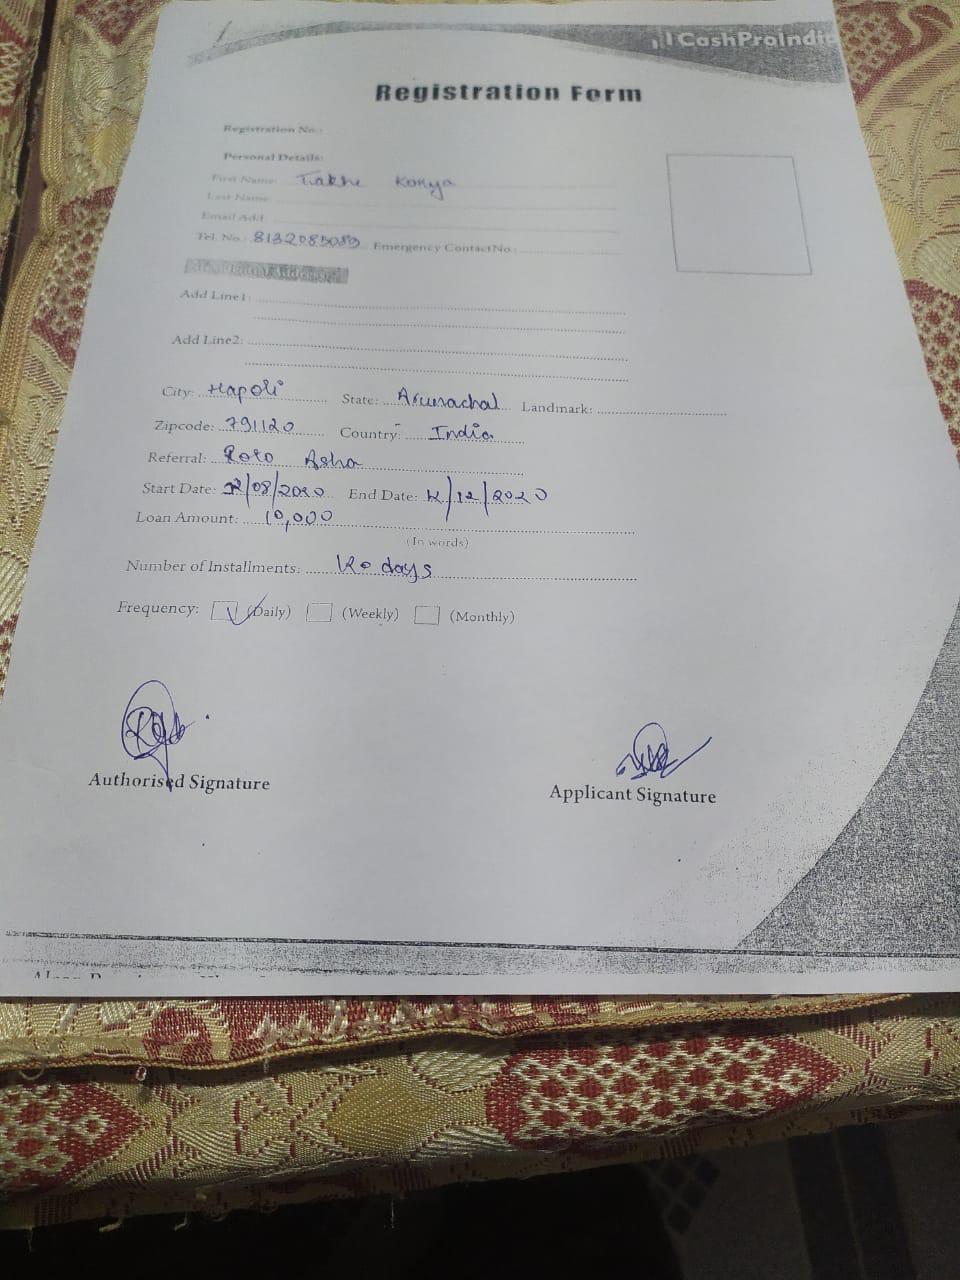 CashProIndia
Registration Form
Registration No.:
Personal Details:
First Name: Takhe Konya
Last Name:
Email Add
Tel. No.: 8132085089 Emergency Contact No.:
Add Line1:
Add Line2:
City: Hapoli State: Arunachal Landmark:
Zipcode: 791120 Country: India
Referral: Roto Asha
Start Date: 12/08/2020 End Date: 12/12/2020
Loan Amount: 10,000
(In words)
Number of Installments: 120 days
Frequency: (Daily) (Weekly) (Monthly)
Authorised Signature
Applicant Signature